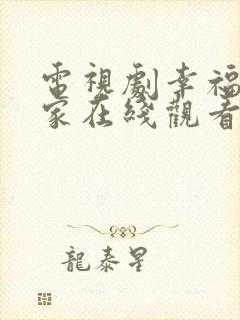 電視劇幸福
家在綫觀看
龍泰星